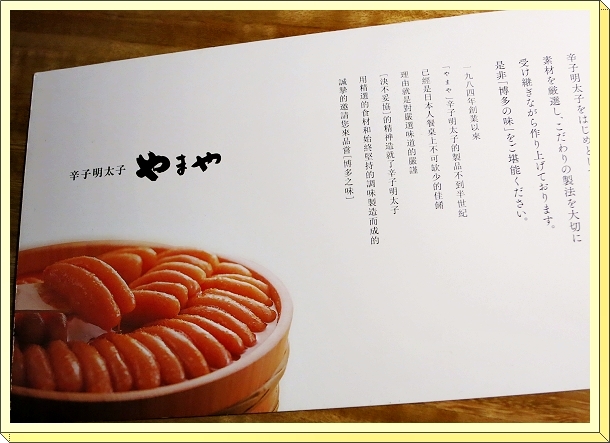 辛子明太子をはじめとし
素材を厳選し、こだわりの製法を大切に
受け継ぎながら作り上げております。
是非「博多の味」をご堪能ください。
一九八四年創業以來
「やまや」辛子明太子的製品不到半世紀
已經是日本人餐桌上不可缺少的佳餚
理由就是對嚴選味道的嚴謹
〔決不妥協〕的精神造就了辛子明太子
用精選的食材和始終堅持的調味製造而成的
誠摯的邀請您來品嘗〔博多之味〕
辛子明太子 やまや